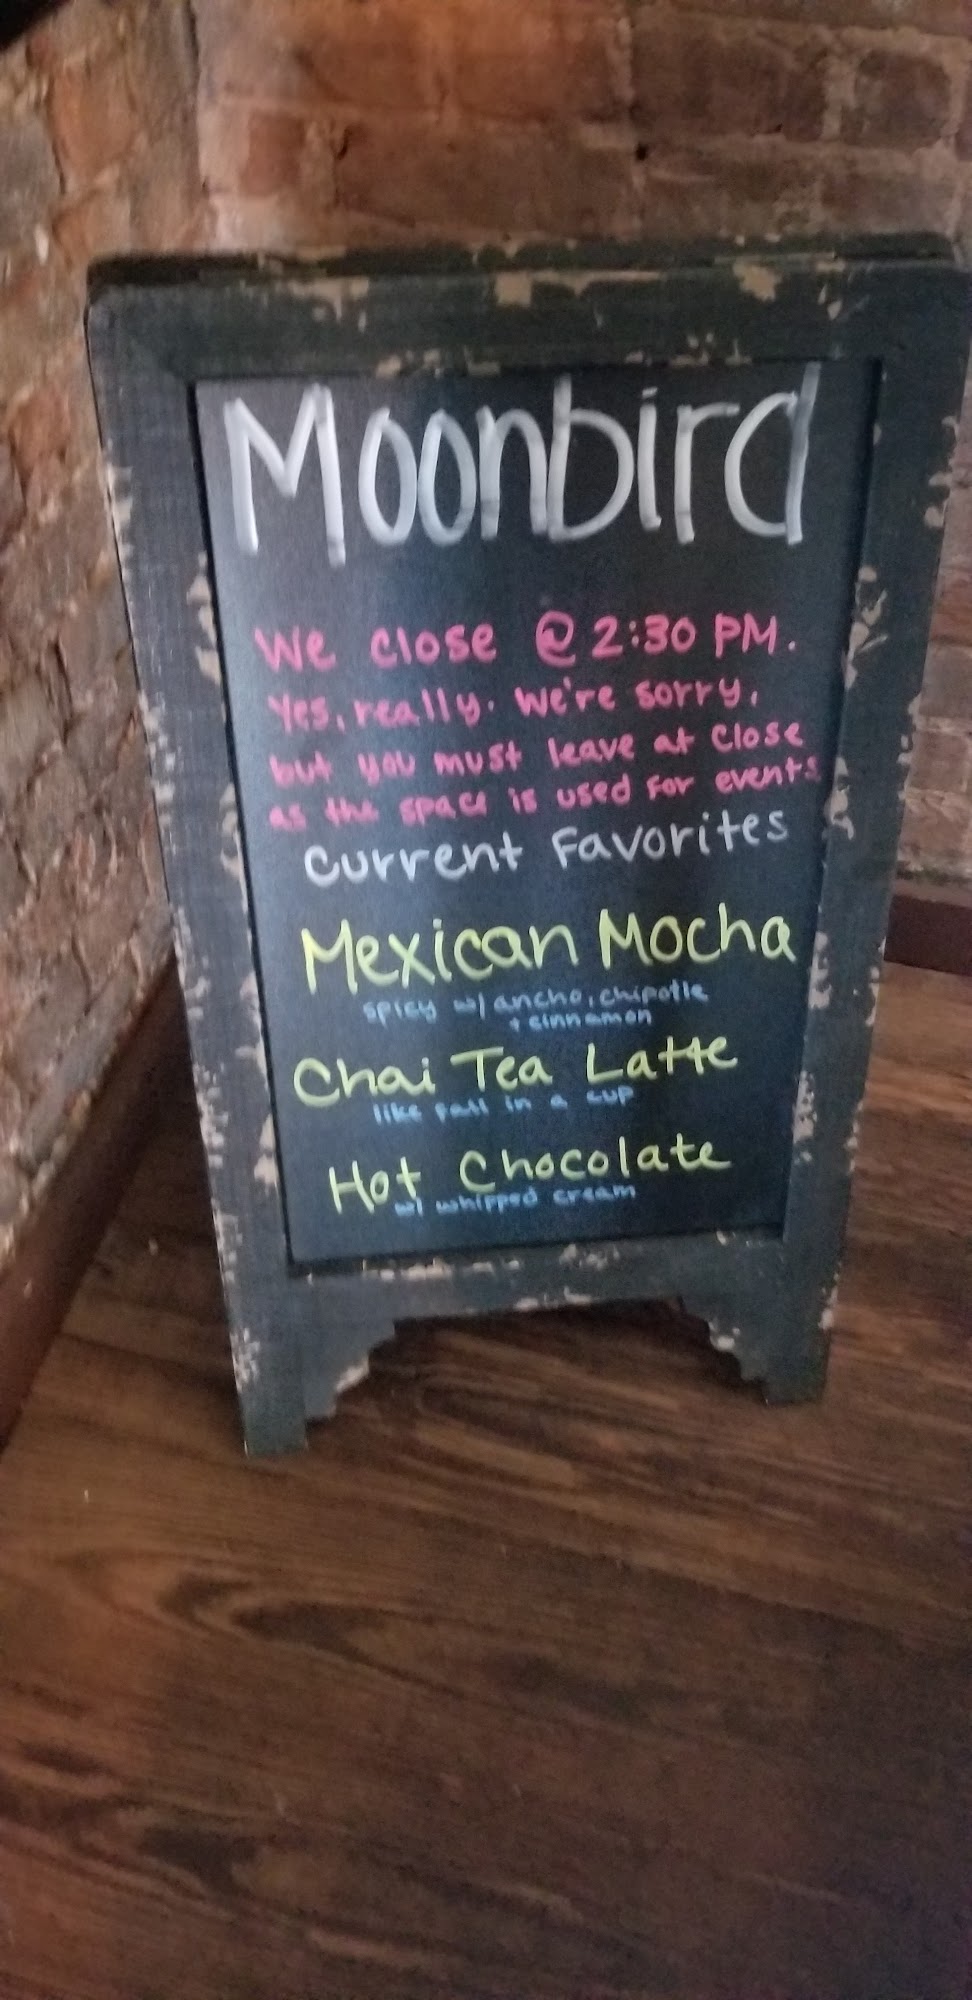 Moonbird
We close @ 2:30 PM.
Yes, really. We're sorry,
but you must leave at close
as the space is used for events
Current Favorites
Mexican Mocha
spicy w/ ancho, chipotle
+ cinnamon
Chai Tea Latte
like fall in a cup
Hot Chocolate
w/ whipped cream